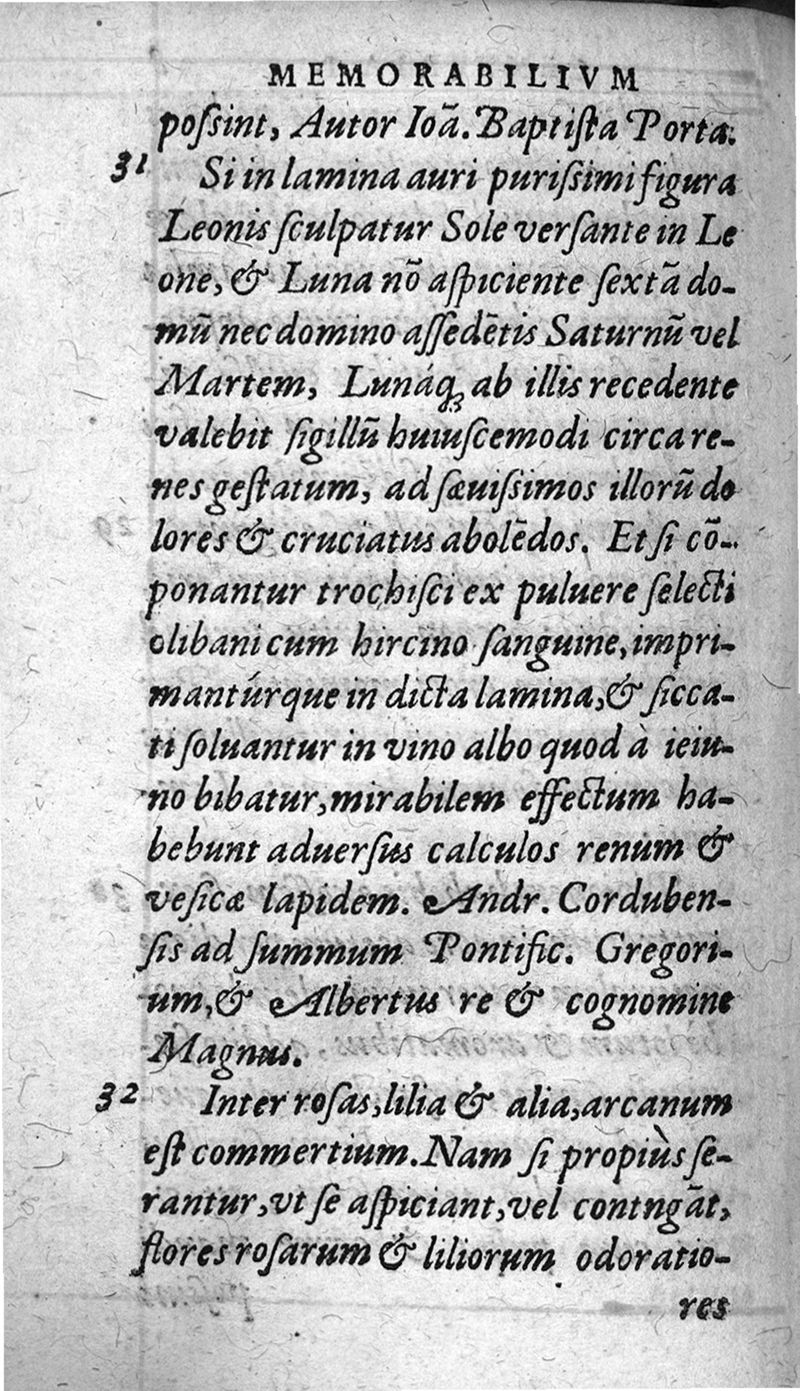 MEMORABILIVM
poſsint, Autor Ioã. Baptiſta Porta.
31 Si in lamina auri puriſsimi figura
Leonis ſculpatur Sole verſante in Le
one, & Luna nõ aſpiciente ſextã do-
mũ nec domino aſſedẽtis Saturnũ vel
Martem, Lunáq; ab illis recedente
valebit ſigillũ huiuſcemodi circa re-
nes geſtatum, ad ſæuiſsimos illorũ do
lores & cruciatus abolẽdos. Et ſi cõ-
ponantur trochiſci ex puluere ſelecti
olibani cum hircino ſanguine, impri-
mantúrque in dicta lamina, & ſicca-
ti ſoluantur in vino albo quod à ieiu-
no bibatur, mirabilem effectum ha-
bebunt aduerſus calculos renum &
veſicæ lapidem. Andr. Corduben-
ſis ad ſummum Pontific. Gregori-
um, & Albertus re & cognomine
Magnus.
32 Inter roſas, lilia & alia, arcanum
eſt commertium. Nam ſi propiùs ſe-
rantur, vt ſe aſpiciant, vel contngãt,
flores roſarum & liliorum odoratio-
res